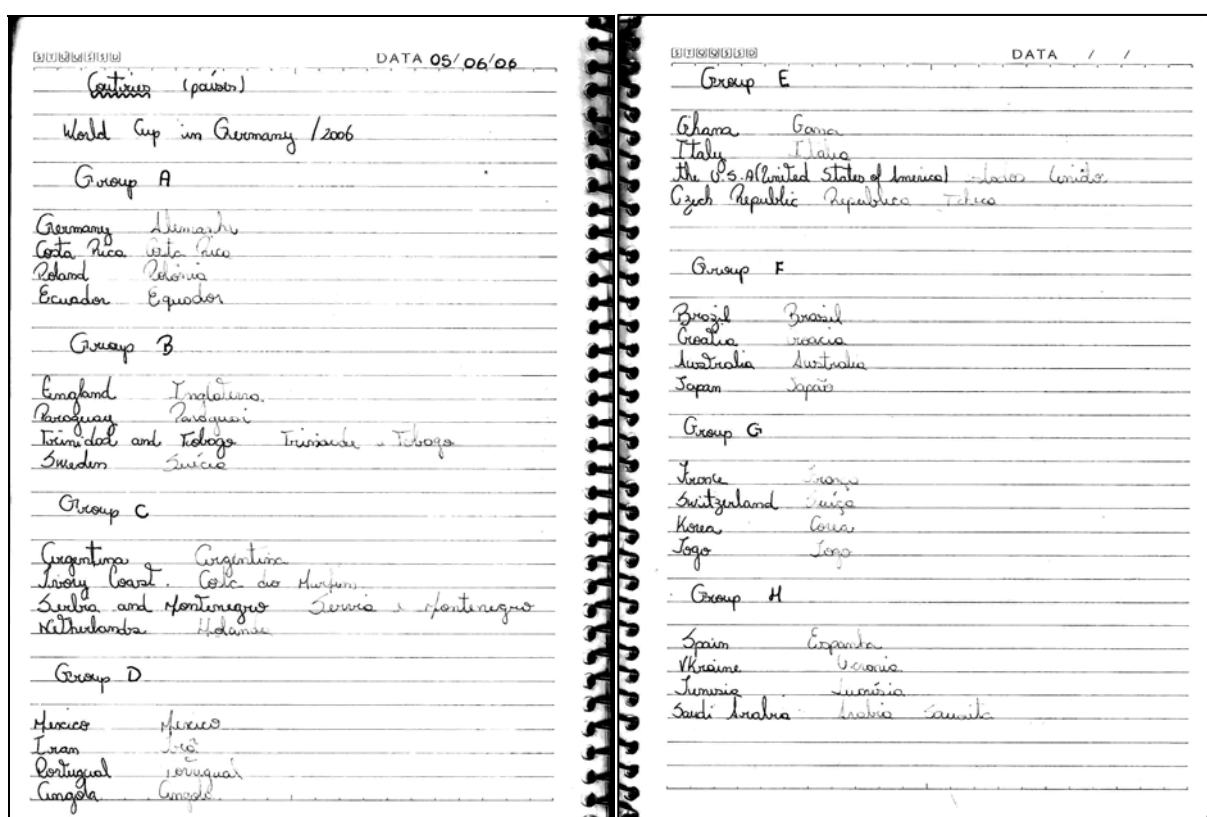 DATA 05/06/06
Coutries (países)
World Cup in Germany / 2006
Group A
Germany Alemanha
Costa Rica Costa Rica
Poland Polônia
Ecuador Equador
Group B
England Inglaterra
Paraguay Paraguai
Trinidad and Tobago Trinidade e Tobago
Sweden Suécia
Group C
Argentina Argentina
Ivory Coast. Costa do Marfim
Serbia and Montenegro Servia e Montenegro
Netherlands Holanda
Group D
Mexico Mexico
Iran Irã
Portugual Portugual
Angola Angola
DATA / /
Group E
Ghana Gana
Italy Itália
the U.S.A (United States of America) Unidos
Czech Republic Republica Tcheca
Group F
Brazil Brasil
Croatia Croacia
Australia Australia
Japan Japão
Group G
France França
Switzerland Suíça
Korea Coréa
Togo Togo
Group H
Spain Espanha
Ukraine Ucrania
Tunisia
Saudi Arabia Arabia Saudita